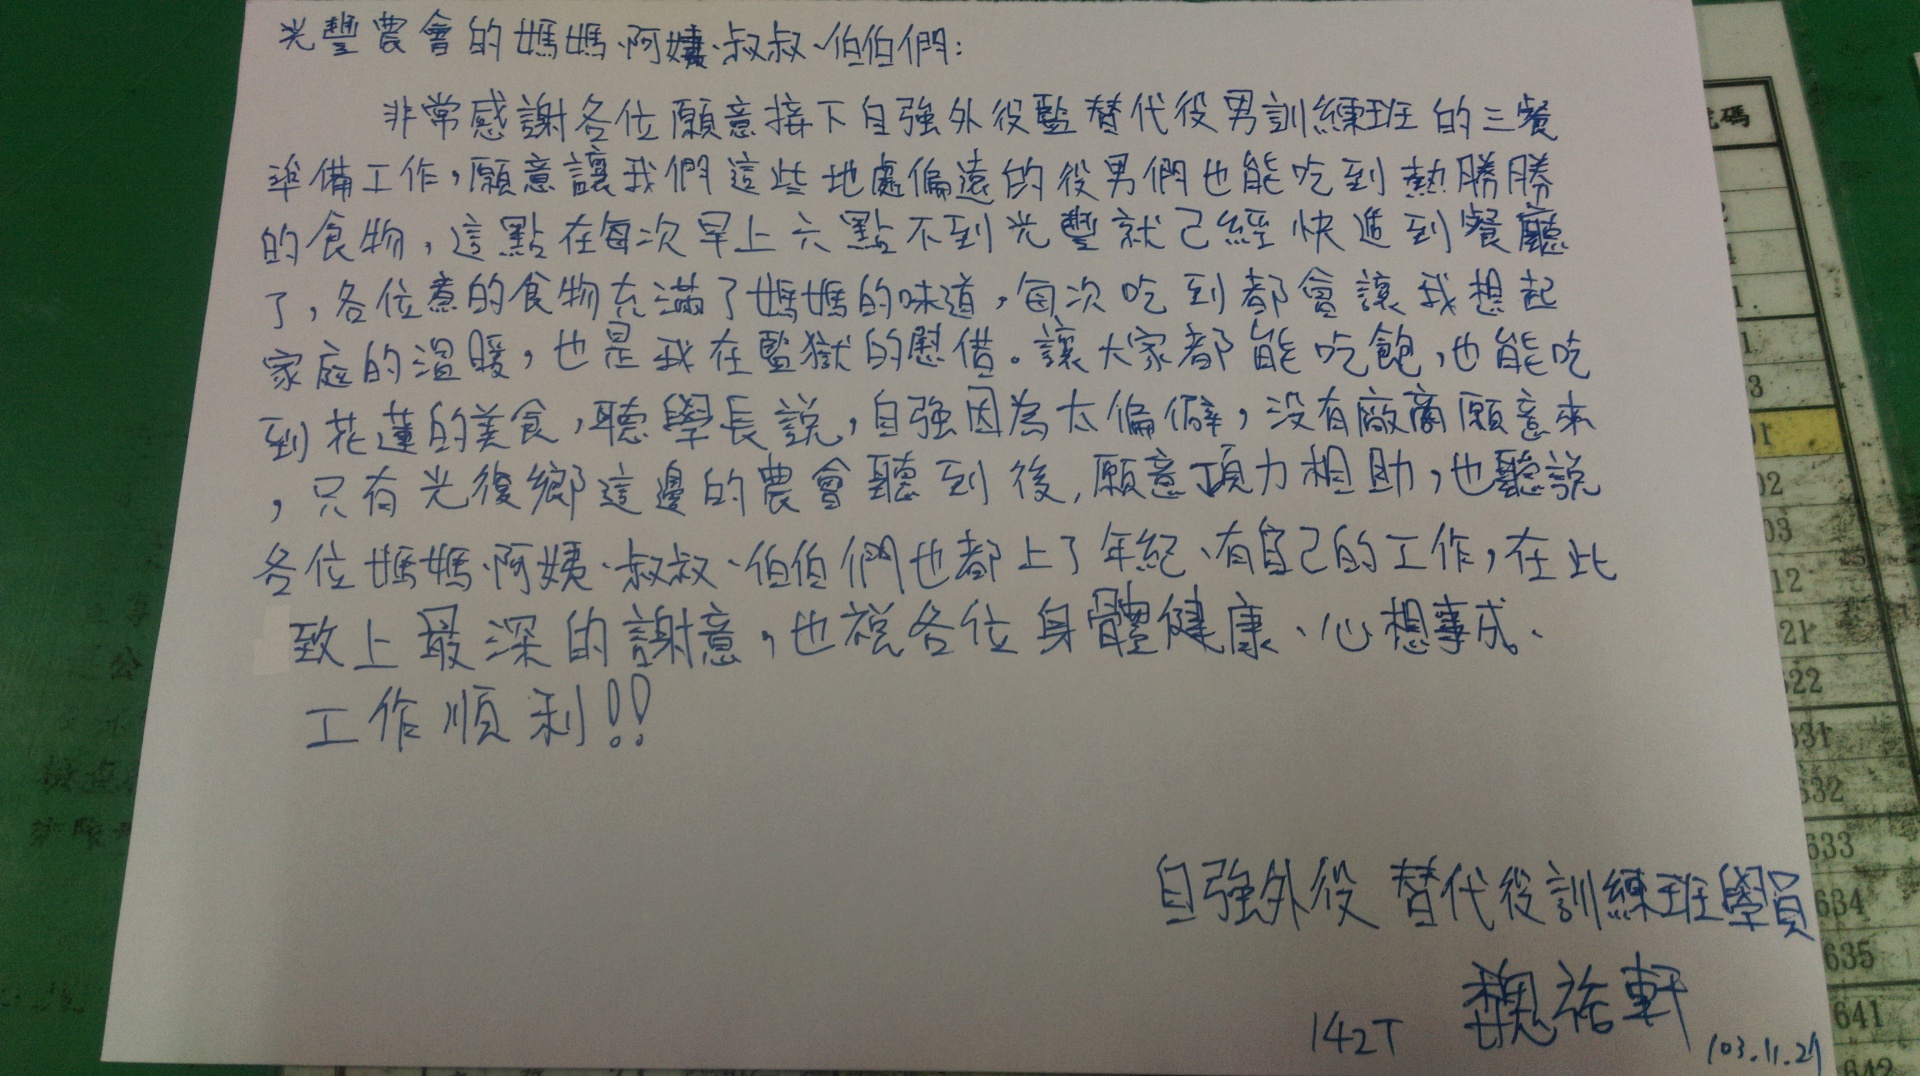 光豐農會的媽媽、阿姨、叔叔、伯伯們:
非常感謝各位願意接下自強外役監替代役男訓練班的三餐
準備工作,願意讓我們這些地處偏遠的役男們也能吃到熱勝勝
的食物,這點在每次早上六點不到光豐就已經快遞到餐廳
了,各位煮的食物充滿了媽媽的味道,每次吃到都會讓我想起
家庭的溫暖,也是我在監獄的慰借。讓大家都能吃飽,也能吃
到花蓮的美食,聽學長說,自強因為太偏僻,沒有廠商願意來
,只有光復鄉這邊的農會聽到後,願意頂力相助,也聽說
各位媽媽、阿姨、叔叔、伯伯們也都上了年紀、有自己的工作,在此
致上最深的謝意,也祝各位身體健康、心想事成、
工作順利!!
自強外役 替代役訓練班學員
142T 魏祐軒 103.11.21
號碼
633
634
635
641
642